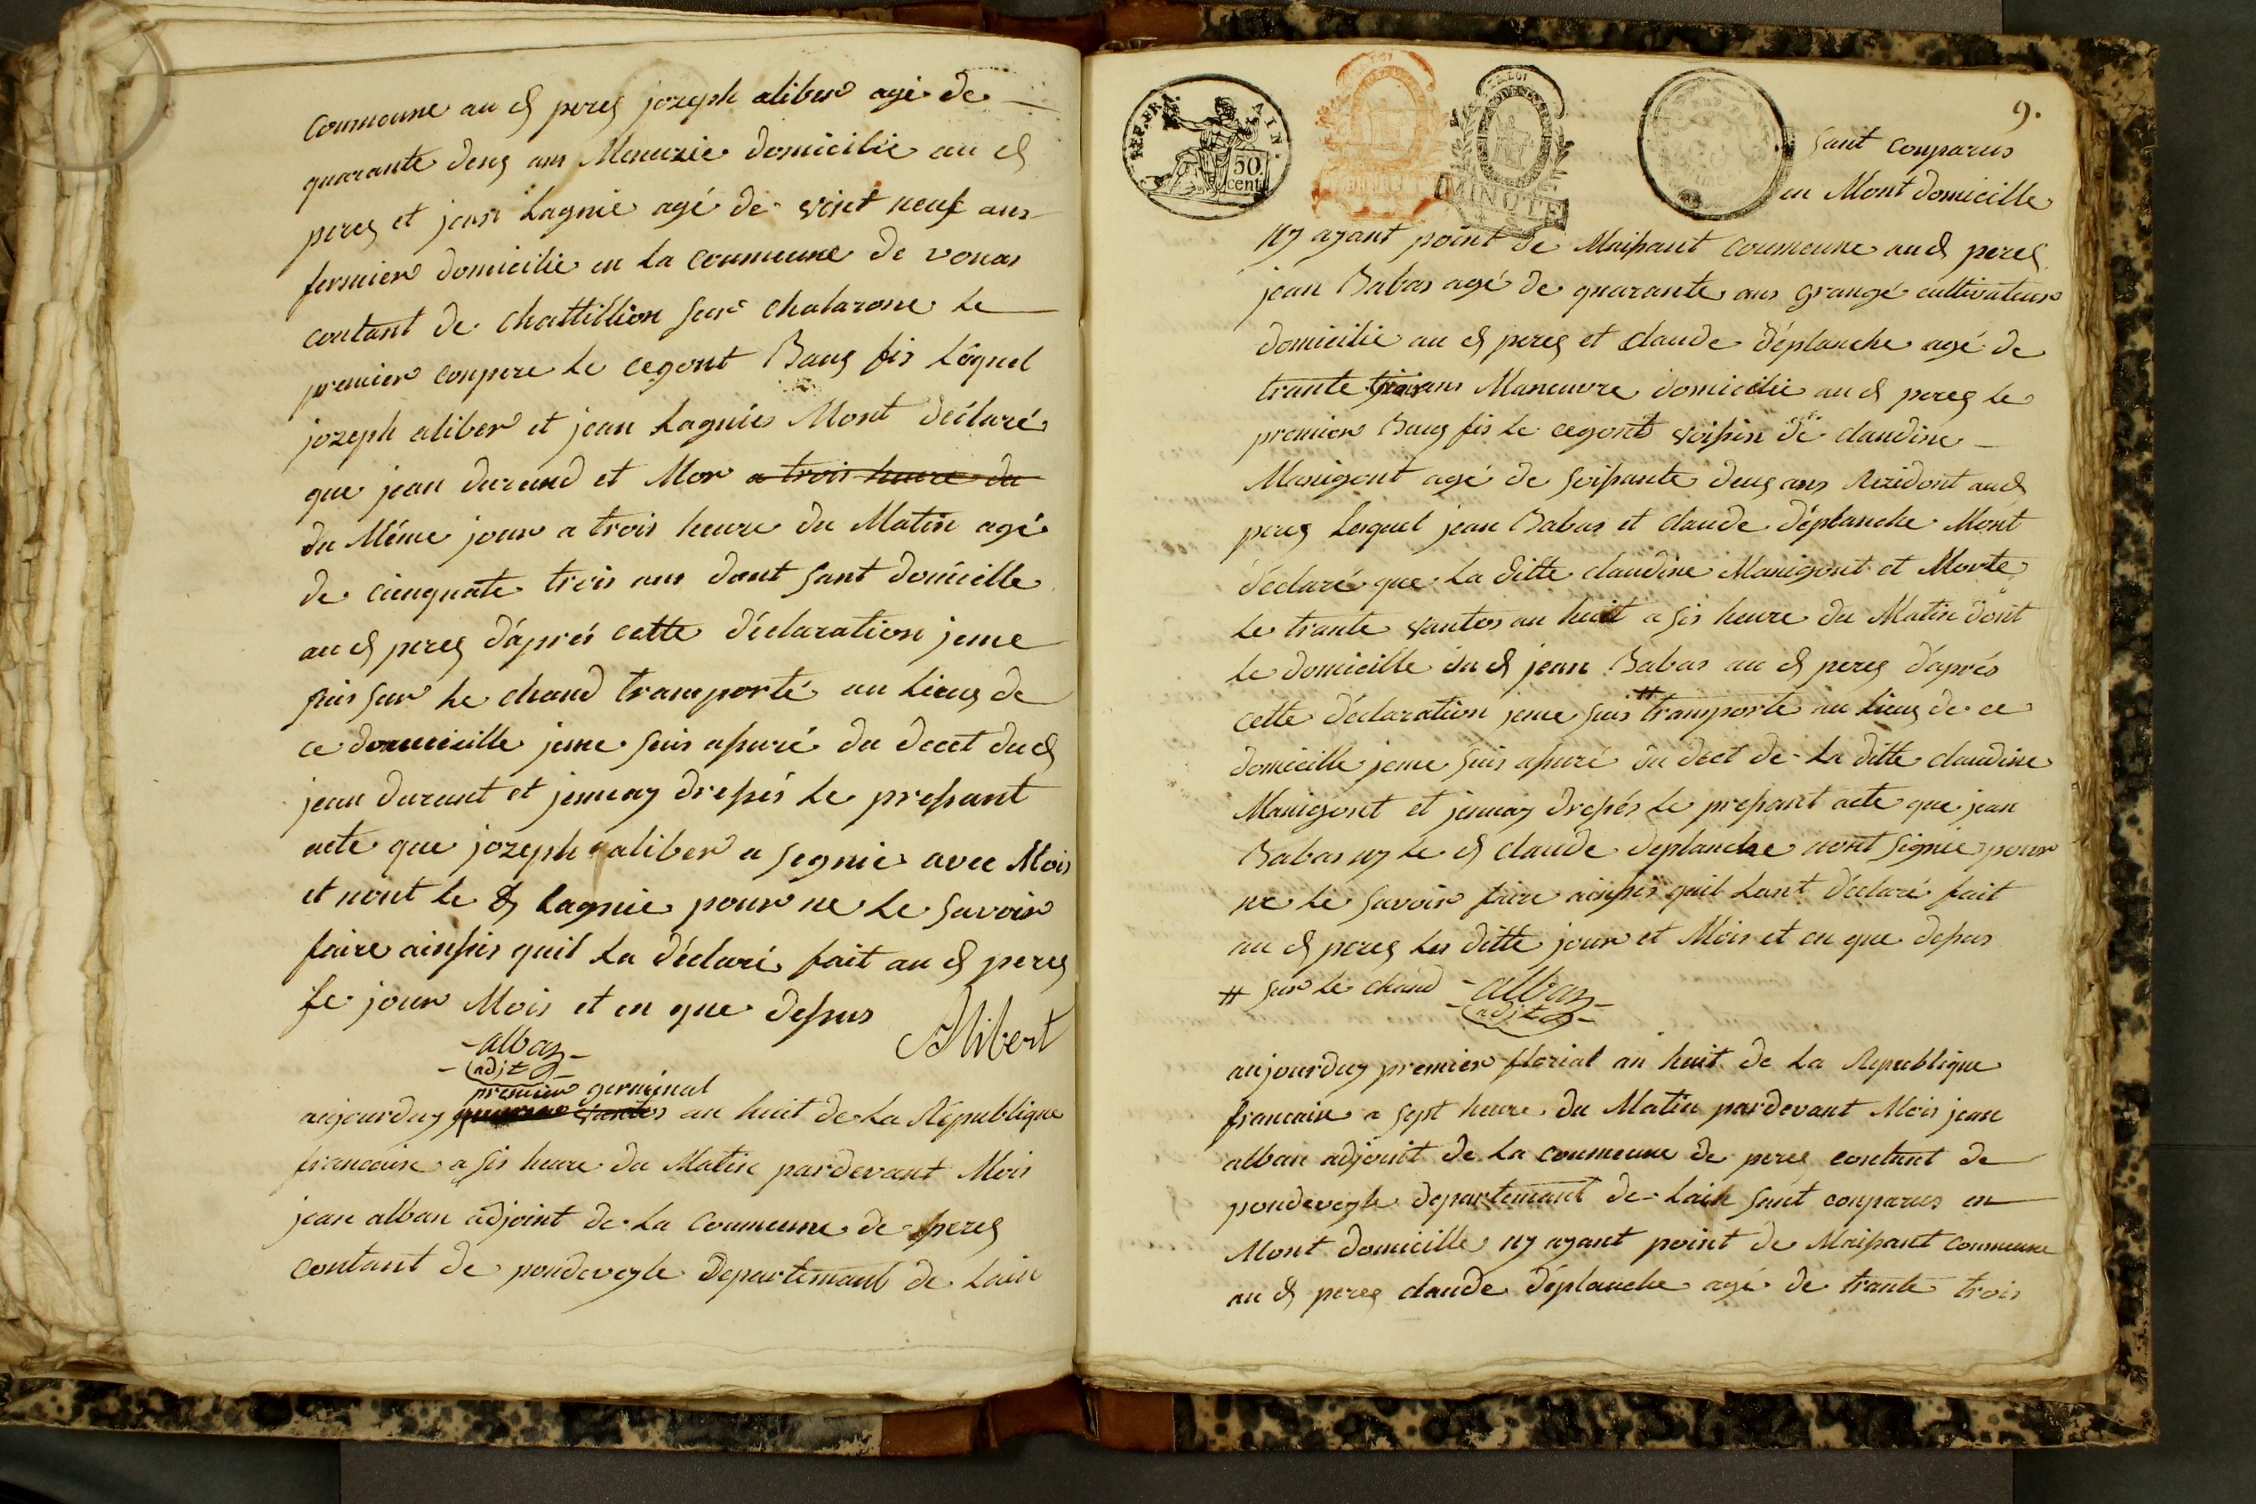 Coumeune au d peres jozeph aliber agé de
quarante deus ans Menuzié domicilié au d
peres et jean Lagnié agé de vint neuf ans
fermier domicilié en La Coumeune de vonas
contant de Chattillion sur chalarone Le
premier conpere Le cegont Baus fis Lêquel
jozeph aliber et jean Lagniés Mont Déclaré
que jean durand et Mor a trois heure du
du Même jour a trois heure du Matin agé
de cinquate trois ans dont sant domicille
au d peres d'aprés cette déclaration jeme
suis sur Le chand transporté au Lieus de
ce domicille jeme suis assuré du decet du d
jean durant et jennay dressés Le pressant
acte que jozeph aliber a segnié avec Mois
et nont le d Lagnié pour ne Le savoir
faire ainssis quil La déclaré fait au d peres
Le jour Mois et en que dessus
Alibert
alban
adjt
premier germinal
aujourduy vantos an huit de La République
francaise a sis heure du Matin pardevant Mois
jean alban adjoint de La Coumeune de peres
contant de pondeveyle Departemant de Lain
REP. FRA. AIN.
50 cent
MINUTE
9.
sant conparus
en Mont domicille
ny ayant point de Maissant coumeune au d peres
jean Babas agé de quarante ans grangé cultivateur
domicilié au d peres et claude déplanche agé de
trante trois ans Maneuvre domicilié au d peres Le
premier Baus fis Le cegont voissin de claudine
Manigont agé de soissante deus ans Rezidont au d
peres Lesquel jean Babas et claude déplanche Mont
déclaré que La ditte claudine Manigont et Morte
Le trante vantos an huit a sis heure du Matin dont
Le domicille du d jean Babas au d peres d'aprés
cette déclaration jeme suis # transporté au Lieus de ce
domicille jeme suis assuré du decet de La ditte claudine
Manigont et jennay dressés Le pressant acte que jean
Babas ny Le d claude deplanche nont signié pour
ne Le savoir faire ainssis quil Lant déclaré fait
au d peres Les ditte jour et Mois et en que dessus
# sur Le chand
alban
adjt
aujourduy premier florial an huit de La Republique
francaise a sept heure du Matin pardevant Mois jean
alban adjoint de La coumeune de peres contant de
pondeveyle departemant de Lain sant conparus en
Mont domicille ny ayant point de Maissant Coumeune
au d peres claude déplanche agé de trante trois